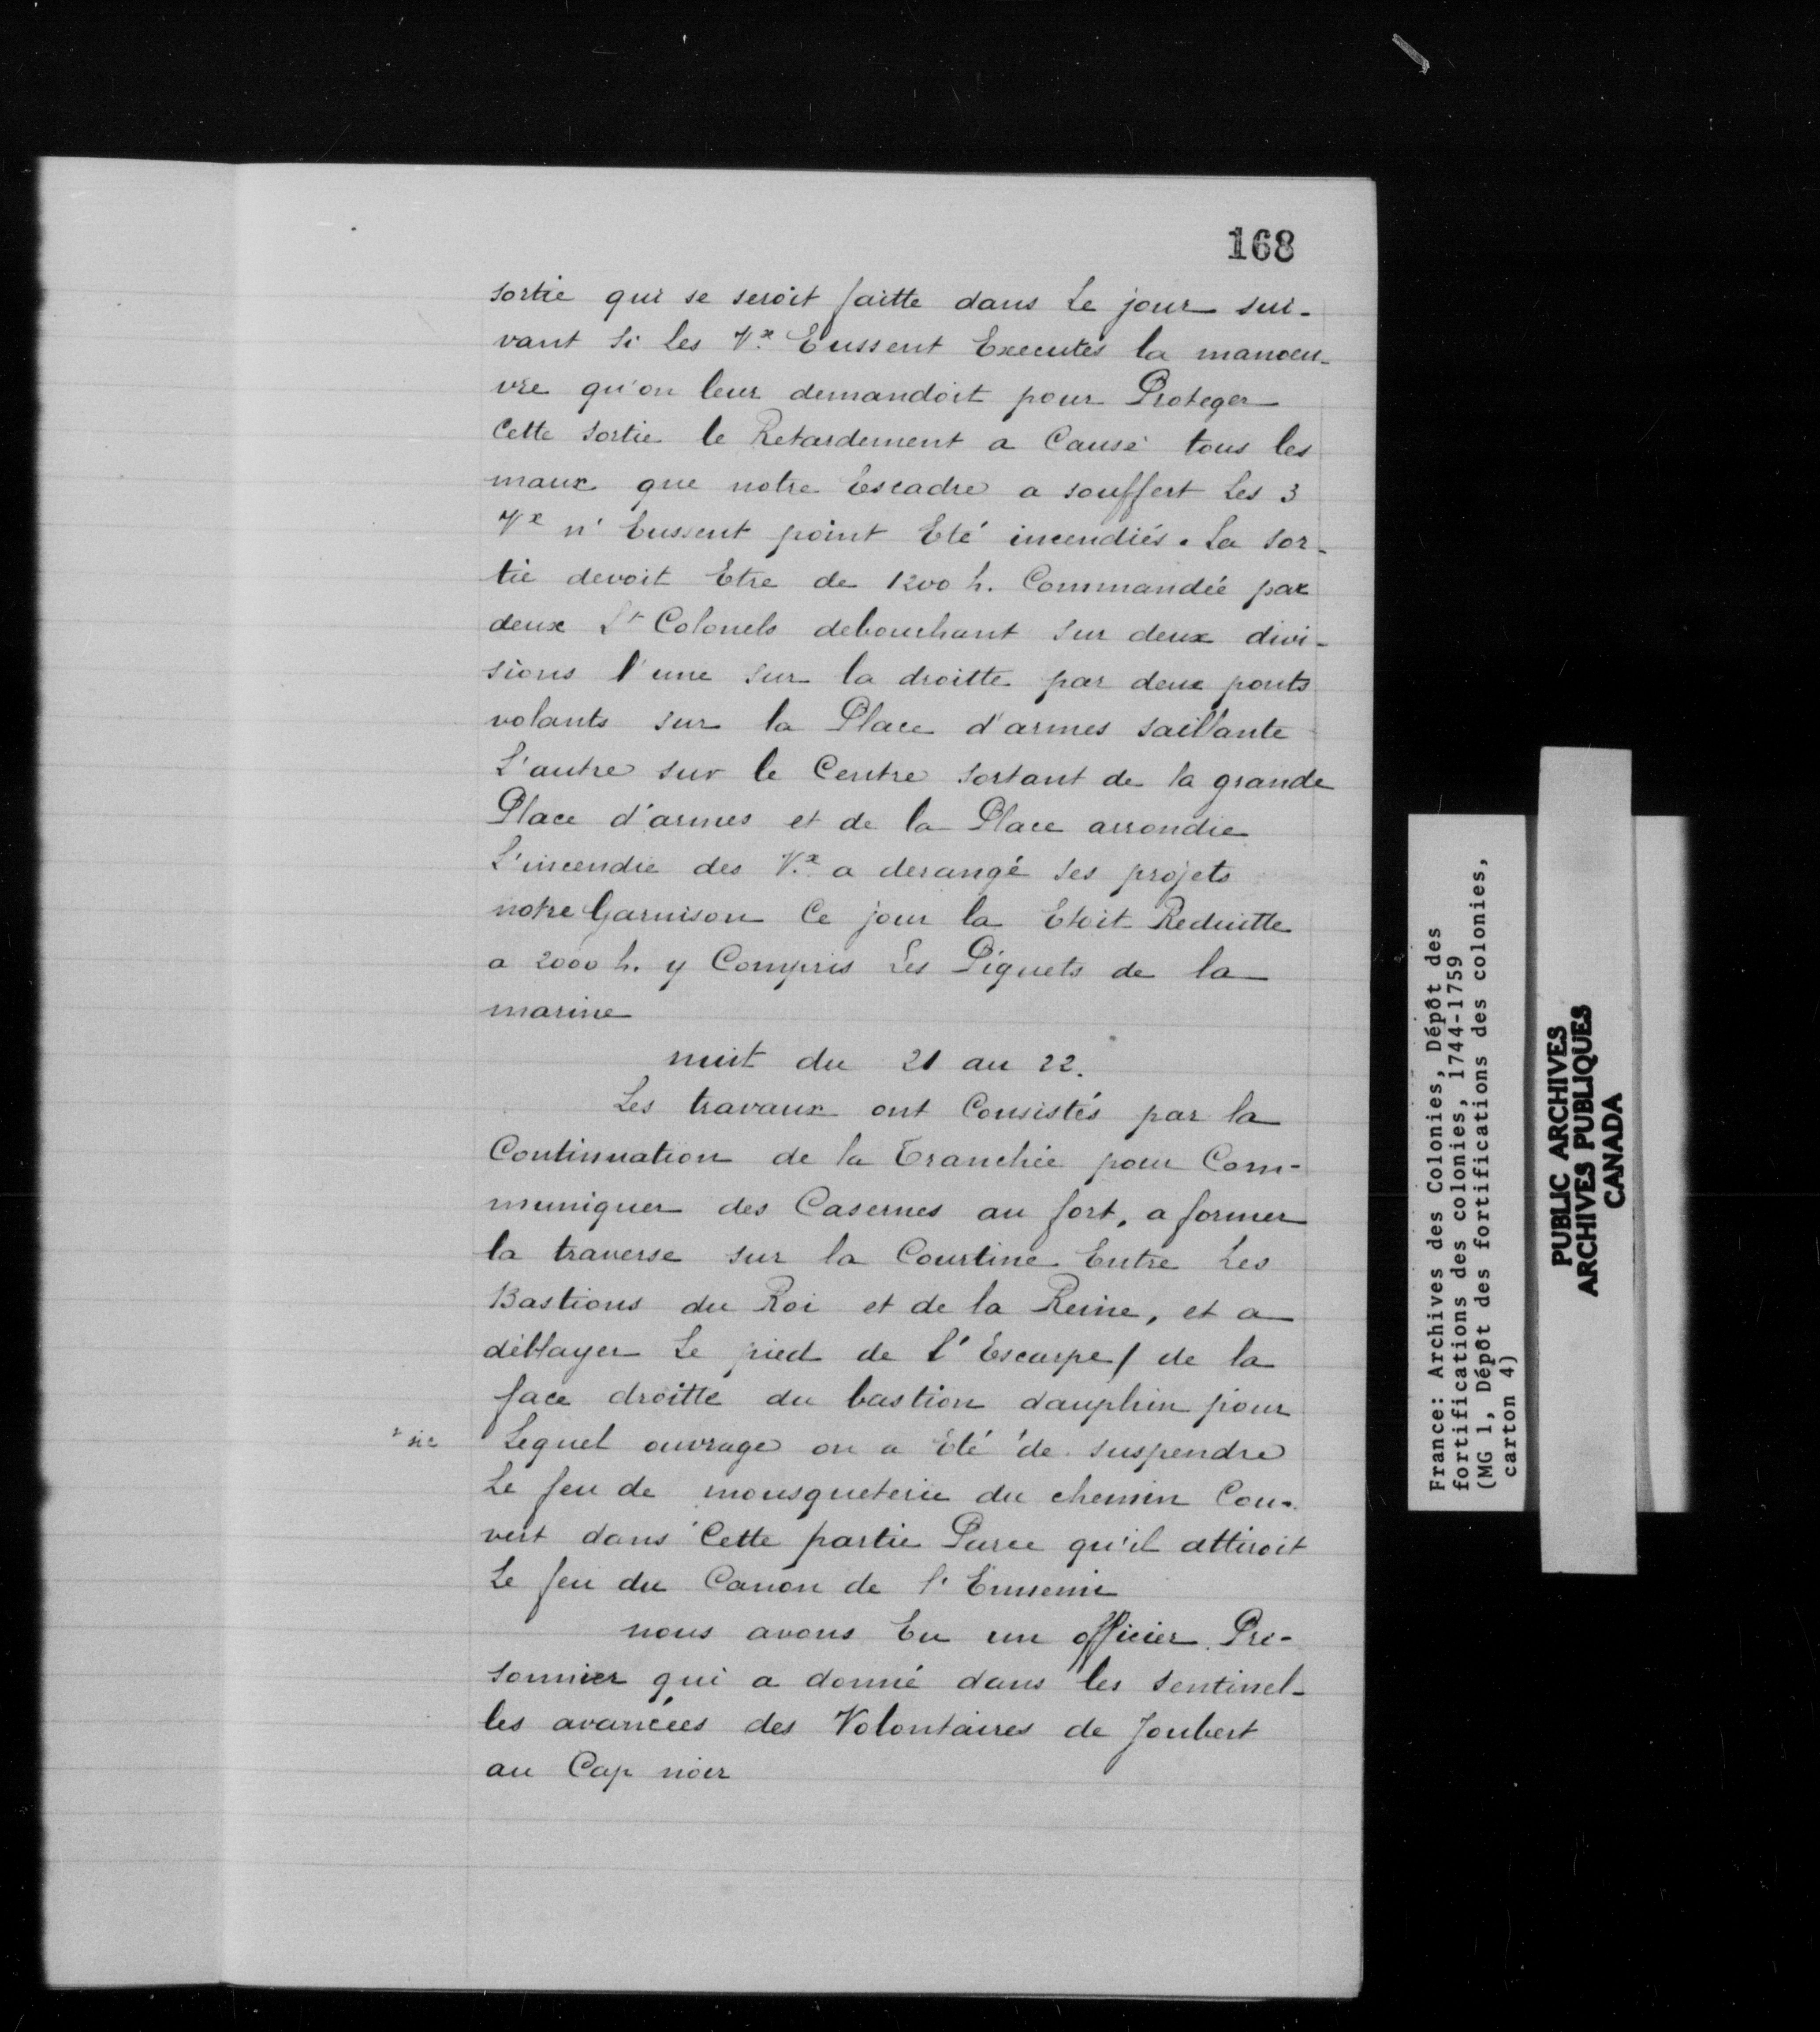 168
sortie qui se seroit faitte dans Le jour sui-
vant Si Les Vx. Eussent Executés la manoeu-
vre qu'on leur demandoit pour Proteger
Cette Sortie le Retardement a Causé tous les
maux que notre Escadre a souffert Les 3
Vx n'Eussent point Eté incendiés. La Sor-
tie devoit Etre de 1200 h. Commandée par
deux Lt Colonels debouchant sur deux divi-
sions l'une sur la droitte par deux ponts
volants sur la Place d'armes saillante
L'autre sur le Centre Sortant de la grande
Place d'armes et de la Place arrondie
L'incendie des Vx. a derangé Ses projets
notre Garnison Ce jour la Etoit Reduitte
a 2000 h. y Compris Les Piquets de la
marine
nuit du 21 au 22.
Les travaux ont Consistés par la
Continuation de la Tranchée pour Com-
muniquer des Casernes au fort, a former
la traverse sur la Courtine Entre Les
Bastions du Roi et de la Reine, et a
déblayer Le pied de l'Escarpe / de la
face droitte du bastion dauphin pour
* sic Lequel ouvrage on a été de suspendre
Le feu de mousqueterie du chemin Cou-
vert dans Cette partie Parce qu'il attiroit
Le feu du Canon de l'Ennemi
nous avons Eu un officier Pri-
sonnier qui a donné dans les Sentinel-
les avancées des Volontaires de Joubert
au Cap noir
France: Archives des Colonies, Dépôt des
fortifications des colonies, 1744-1759
(MG 1, Dépôt des fortifications des colonies,
carton 4)
PUBLIC ARCHIVES
ARCHIVES PUBLIQUES
CANADA